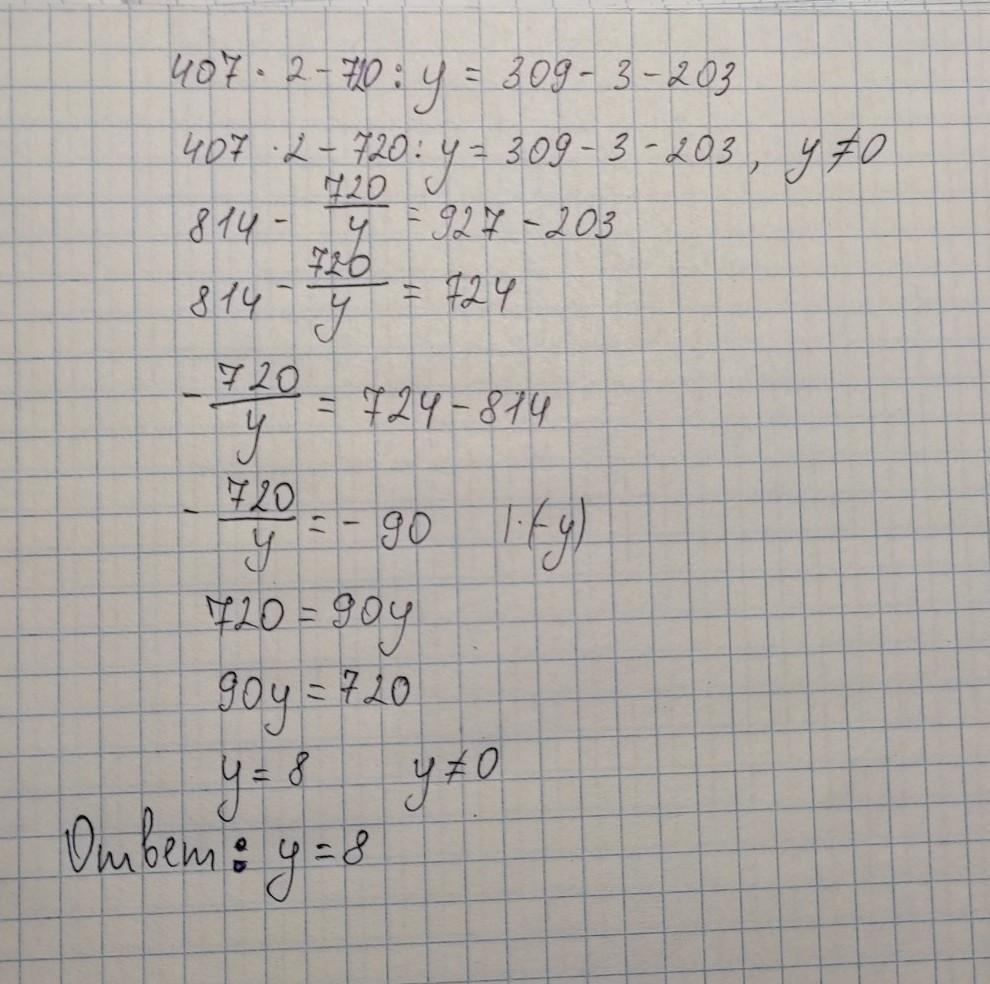 407 · 2 - 720 : y = 309 - 3 - 203
407 · 2 - 720 : y = 309 - 3 - 203, y ≠ 0
814 - 720/y = 927 - 203
814 - 720/y = 724
- 720/y = 724 - 814
- 720/y = - 90 |·(-y)
720 = 90y
90y = 720
y = 8 y ≠ 0
Ответ: y = 8